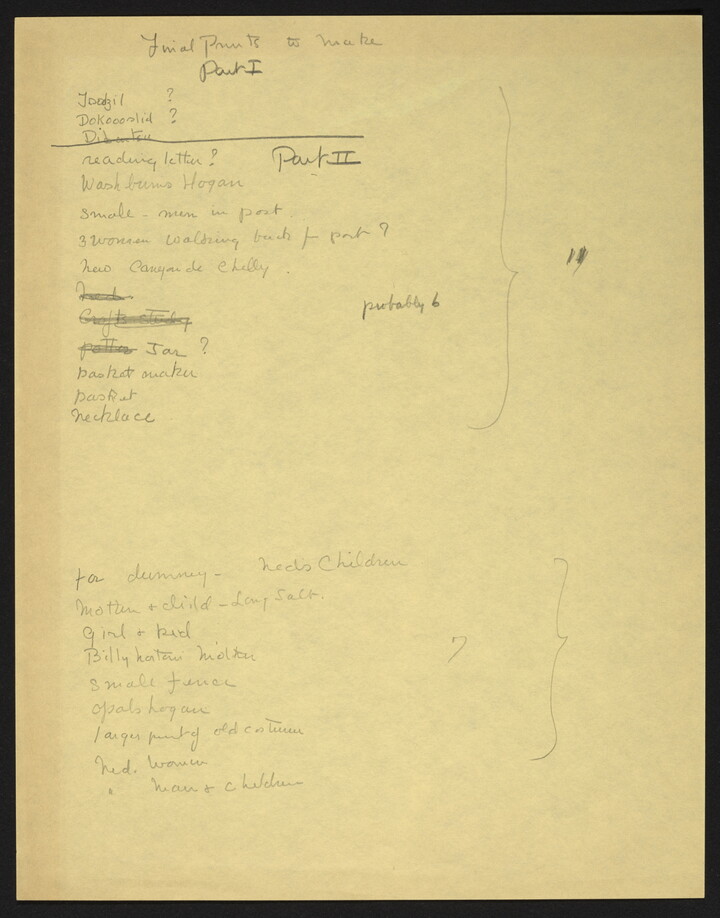 Final Prints to make
Part I
?
Dokoooslid ?
reading letter? Part II
Washburns Hogan
small - men in post.
3 women walking back fr post ?
new Canyon de Chelly.
Ned
Crafts study
probably 6
Jar ?
basket maker
basket
necklace
11
for dummy - Ned's Children
Mother & child - Long Salt.
Girl & kid
Billy Mother
small fence
opals hogan
larger print of old costume
7
Ned. Women
" Man & Children